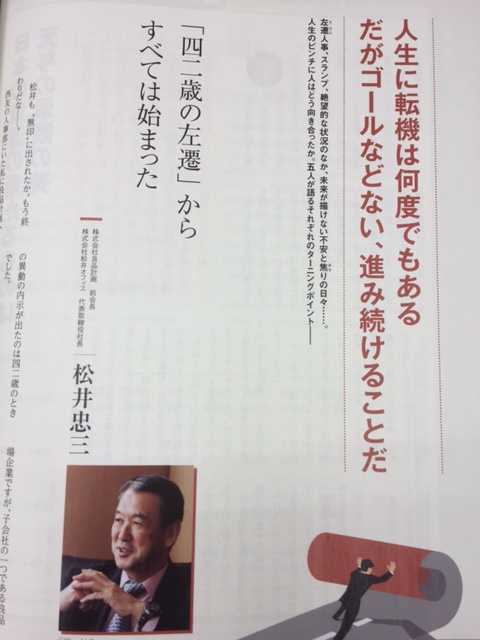 人生に転機は何度でもある
だがゴールなどない、進み続けることだ
左遷人事、スランプ、絶望的な状況のなか、未来が描けない不安と焦りの日々……。
人生のピンチに人はどう向き合ったか。五人が語るそれぞれのターニングポイント――
「四二歳の左遷」から
すべては始まった
株式会社良品計画 前会長
株式会社松井オフィス 代表取締役社長
松井忠三
松井も〝無印〟に出されたか。もう終
わりだな――。
西友の人事部にいた私に良品計画へ
の異動の内示が出たのは四二歳のとき
でした。
場企業ですが、子会社の一つである良品